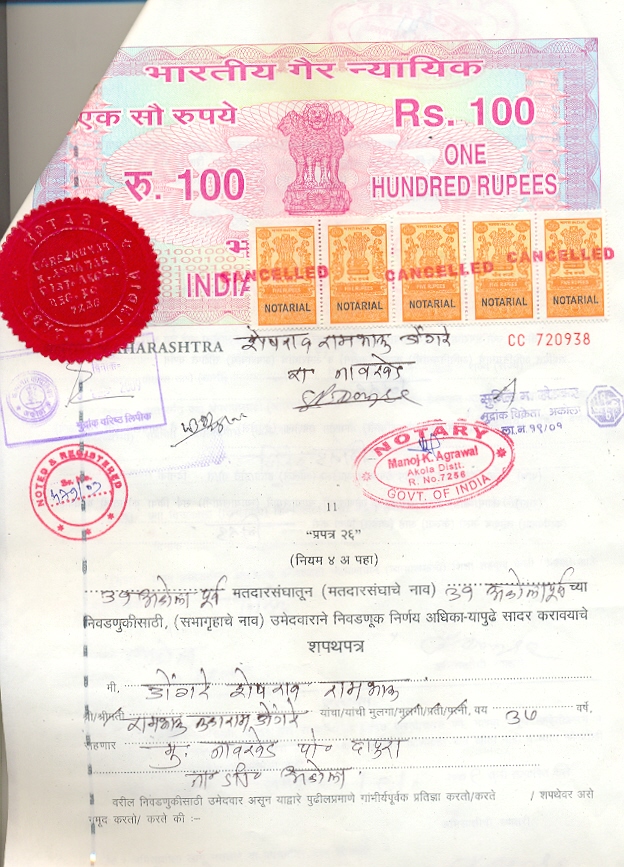 भारतीय गैर न्यायिक
एक सौ रुपये
Rs. 100
रु. 100
ONE
HUNDRED RUPEES
INDIA
CANCELLED CANCELLED CANCELLED
NOTARIAL NOTARIAL NOTARIAL NOTARIAL NOTARIAL
NOTARY
MAHARASHTRA
CC 720938
शेषराव रामभाऊ डोंगरे
रा नावखेड
मुद्रांक वरिष्ठ लिपीक
मुद्रांक विक्रेता, अकोला
ला.न.१९/०१
NOTARY
Manoj K. Agrawal
Akola Distt.
R. No.7256
GOVT. OF INDIA
NOTED & REGISTERED
11
"प्रपत्र २६"
(नियम ४ अ पहा)
अकोला पूर्व मतदारसंघातून (मतदारसंघाचे नाव) अकोला पूर्व च्या
निवडणुकीसाठी, (सभागृहाचे नाव) उमेदवाराने निवडणूक निर्णय अधिका-यापुढे सादर करावयाचे
शपथपत्र
मी, डोंगरे शेषराव रामभाऊ
श्री/श्रीमती रामभाऊ डोंगरे यांचा/यांची मुलगा/मुलगी/पती/पत्नी, वय ३७ वर्ष,
राहणार मु. नावखेड पो॰ दापुरा
ता॰ जि॰ अकोला
वरील निवडणुकीसाठी उमेदवार असून याद्वारे पुढीलप्रमाणे गांभीर्यपूर्वक प्रतिज्ञा करतो/करते / शपथेवर असे
नमूद करतो/ करते की :–